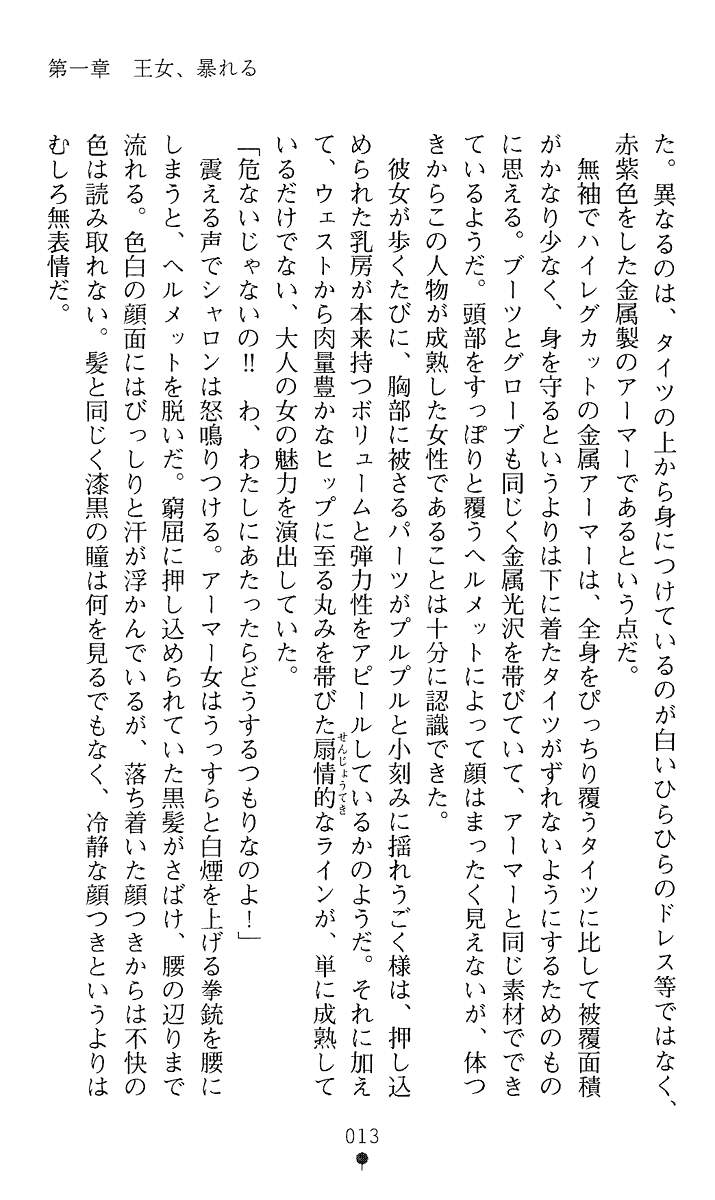 第一章　王女、暴れる
た。異なるのは、タイツの上から身につけているのが白いひらひらのドレス等ではなく、
赤紫色をした金属製のアーマーであるという点だ。
　無袖でハイレグカットの金属アーマーは、全身をぴっちり覆うタイツに比して被覆面積
がかなり少なく、身を守るというよりは下に着たタイツがずれないようにするためのもの
に思える。ブーツとグローブも同じく金属光沢を帯びていて、アーマーと同じ素材ででき
ているようだ。頭部をすっぽりと覆うヘルメットによって顔はまったく見えないが、体つ
きからこの人物が成熟した女性であることは十分に認識できた。
　彼女が歩くたびに、胸部に被さるパーツがプルプルと小刻みに揺れうごく様は、押し込
められた乳房が本来持つボリュームと弾力性をアピールしているかのようだ。それに加え
て、ウェストから肉量豊かなヒップに至る丸みを帯びた扇情的なラインが、単に成熟して
せんじょうてき
いるだけでない、大人の女の魅力を演出していた。
「危ないじゃないの!!　わ、わたしにあたったらどうするつもりなのよ！」
　震える声でシャロンは怒鳴りつける。アーマー女はうっすらと白煙を上げる拳銃を腰に
しまうと、ヘルメットを脱いだ。窮屈に押し込められていた黒髪がさばけ、腰の辺りまで
流れる。色白の顔面にはびっしりと汗が浮かんでいるが、落ち着いた顔つきからは不快の
色は読み取れない。髪と同じく漆黒の瞳は何を見るでもなく、冷静な顔つきというよりは
むしろ無表情だ。
013